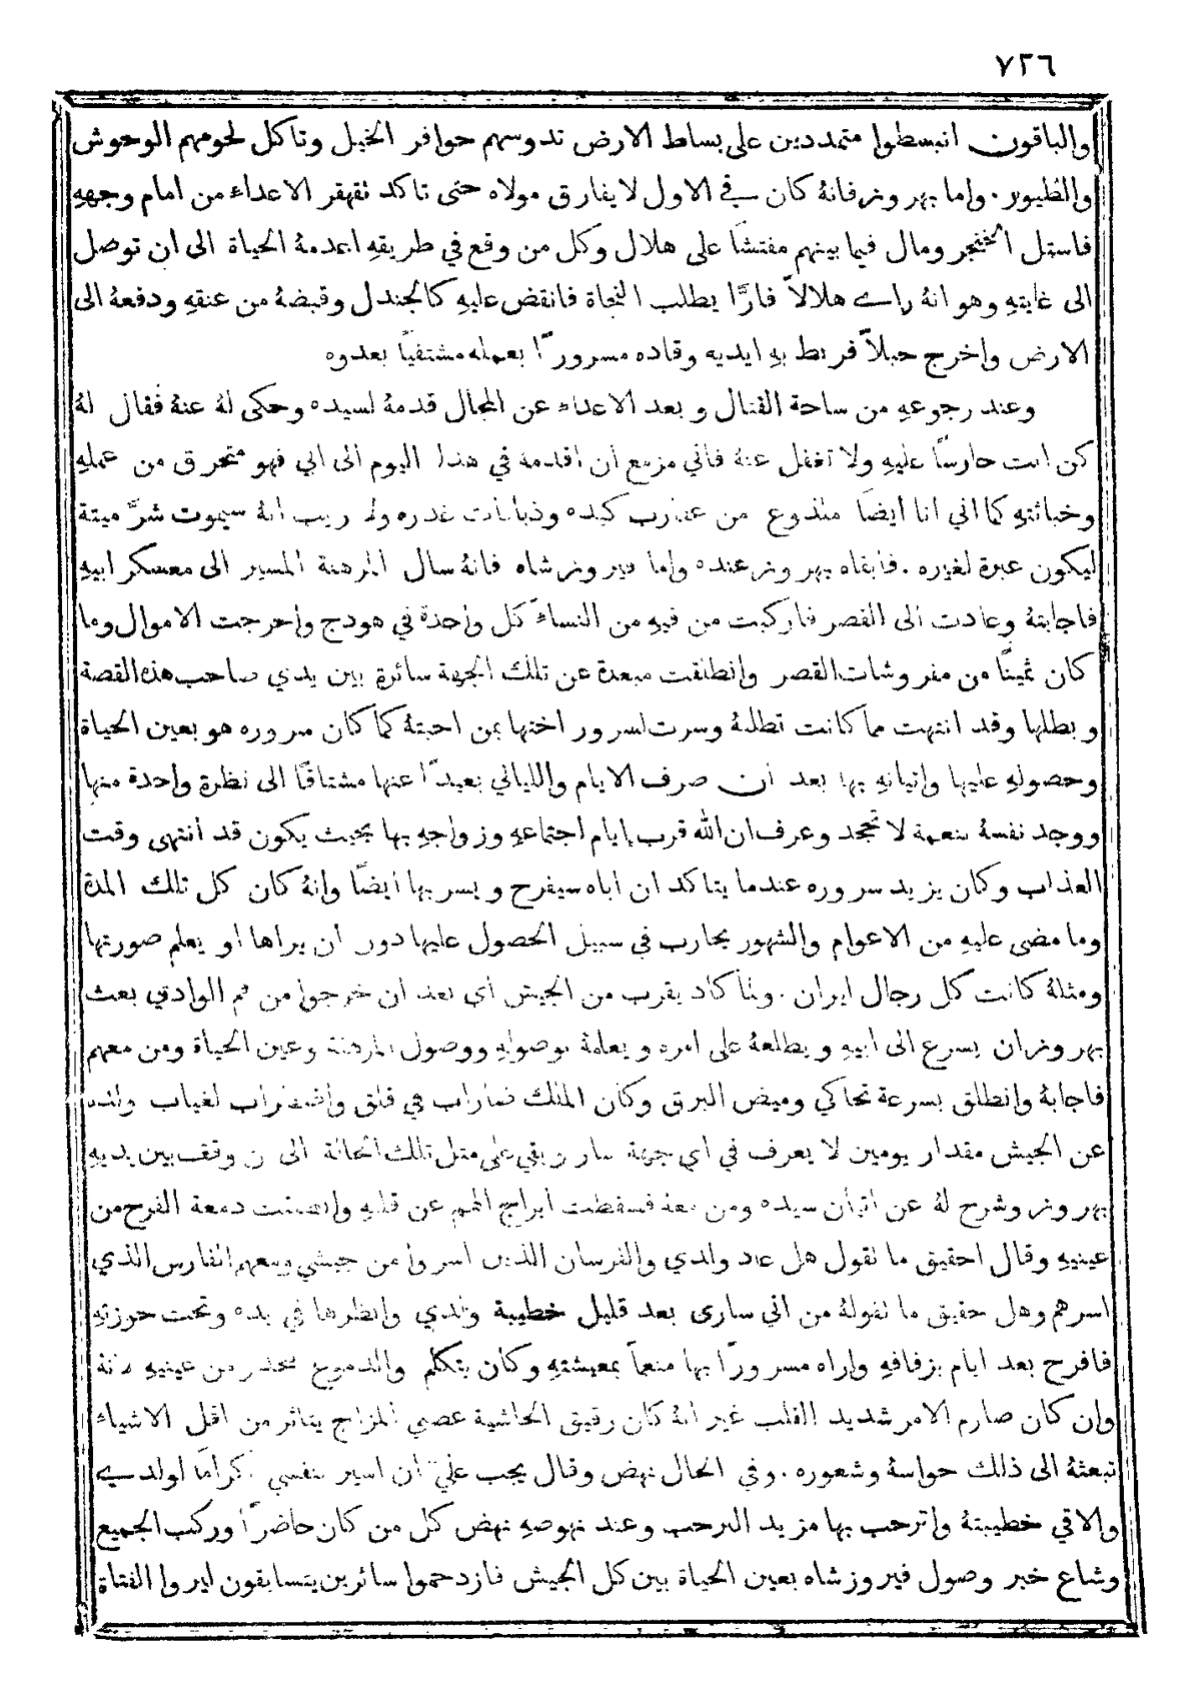 ٧٢٦
والباقون انبسطوا متمددين على بساط الارض تدوسهم حوافر الخيل وتاكل لحومهم الوحوش
والطيور. واما بهروز فانهُ كان في الاول لا يفارق مولاه حتى تاكد تقهقر الاعداء من امام وجههِ
فاستل الخنجر ومال فيما بينهم مفتشًا على هلال وكل من وقع في طريقهِ اعدمهُ الحياة الى ان توصل
الى غايتهِ وهو انهُ راى هلالاً فارًّا يطلب النجاة فانقض عليهِ كالجندل وقبضهُ من عنقهِ ودفعهُ الى
الارض واخرج حبلاً فربط بهِ ايديه وقاده مسرورًا بعمله مشتفيًا بعدوه
وعند رجوعهِ من ساحة القتال وبعد الاعداء عن المجال قدمهُ لسيده وحكى لهُ عنهُ فقال لهُ
كن انت حارسًا عليهِ ولا تغفل عنهُ فاني مزمع ان اقدمه في هذا اليوم الى ابي فهو متحرق من عملهِ
وخباثتهِ كما اني انا ايضًا ملذوع من عقارب كيده وذبابات غدره ولا ريب انهُ سيموت شرَّ ميتة
ليكون عبرة لغيره. فابقاه بهروز عنده واما فيروز شاه فانهُ سال المرهنة المسير الى معسكر ابيهِ
فاجابتهُ وعادت الى القصر فاركبت من فيهِ من النساء كل واحدة في هودج واخرجت الاموال وما
كان ثمينًا من مفروشات القصر وانطلقت مبعدة عن تلك الجهة سائرة بين يدي صاحب هذه القصة
وبطلها وقد انتهت مما كانت تطلبهُ وسرت لسرور اختها بمن احبتهُ كما كان سروره هو بعين الحياة
وحصولهِ عليها واتيانهِ بها بعد ان صرف الايام والليالي بعيدًا عنها مشتاقًا الى نظرة واحدة منها
ووجد نفسهُ بنعمة لا تجحد وعرف ان الله قرب ايام اجتماعهِ وزواجهِ بها بحيث يكون قد انتهى وقت
العذاب وكان يزيد سروره عندما يتاكد ان اباه سيفرح ويسر بها ايضًا وانهُ كان كل تلك المدة
وما مضى عليهِ من الاعوام والشهور يحارب في سبيل الحصول عليها دون ان يراها او يعلم صورتها
ومثلهُ كانت كل رجال ايران. ولما كاد يقرب من الجيش اي بعد ان خرجوا من فم الوادي بعث
بهروز ان يسرع الى ابيهِ ويطلعهُ على امره ويعلمهُ بوصولهِ ووصول المرهنة وعين الحياة ومن معهم
فاجابهُ وانطلق بسرعة تحاكي وميض البرق وكان الملك ضاراب في قلق واضطراب لغياب ولده
عن الجيش مقدار يومين لا يعرف في اي جهة سار وبقي على مثل تلك الحالة الى ان وقف بين يديهِ
بهروز وشرح لهُ عن اتيان سيده ومن معهُ فسقطت ابراج الهم عن قلبهِ وانصبت دمعة الفرح من
عينيهِ وقال احقيق ما تقول هل عاد ولدي والفرسان الذين اسروا من جيشي ومعهم الفارس الذي
اسرهم وهل حقيق ما تقولهُ من اني سارى بعد قليل خطيبة ولدي وانظرها في يده وتحت حوزتهِ
فافرح بعد ايام بزفافهِ واراه مسرورًا بها منعمًا بمعيشتهِ وكان يتكلم والدموع تنحدر من عينيهِ لانهُ
وان كان صارم الامر شديد القلب غير انهُ كان رقيق الحاشية عصبي المزاج يتاثر من اقل الاشياء
تبعثهُ الى ذلك حواسهُ وشعوره. وفي الحال نهض وقال يجب عليَّ ان اسير بنفسي اكرامًا لولدي
والاقي خطيبتهُ واترحب بها مزيد الترحب وعند نهوضهِ نهض كل من كان حاضرًا وركب الجميع
وشاع خبر وصول فيروز شاه بعين الحياة بين كل الجيش فازدحموا سائرين يتسابقون ليروا الفتاة